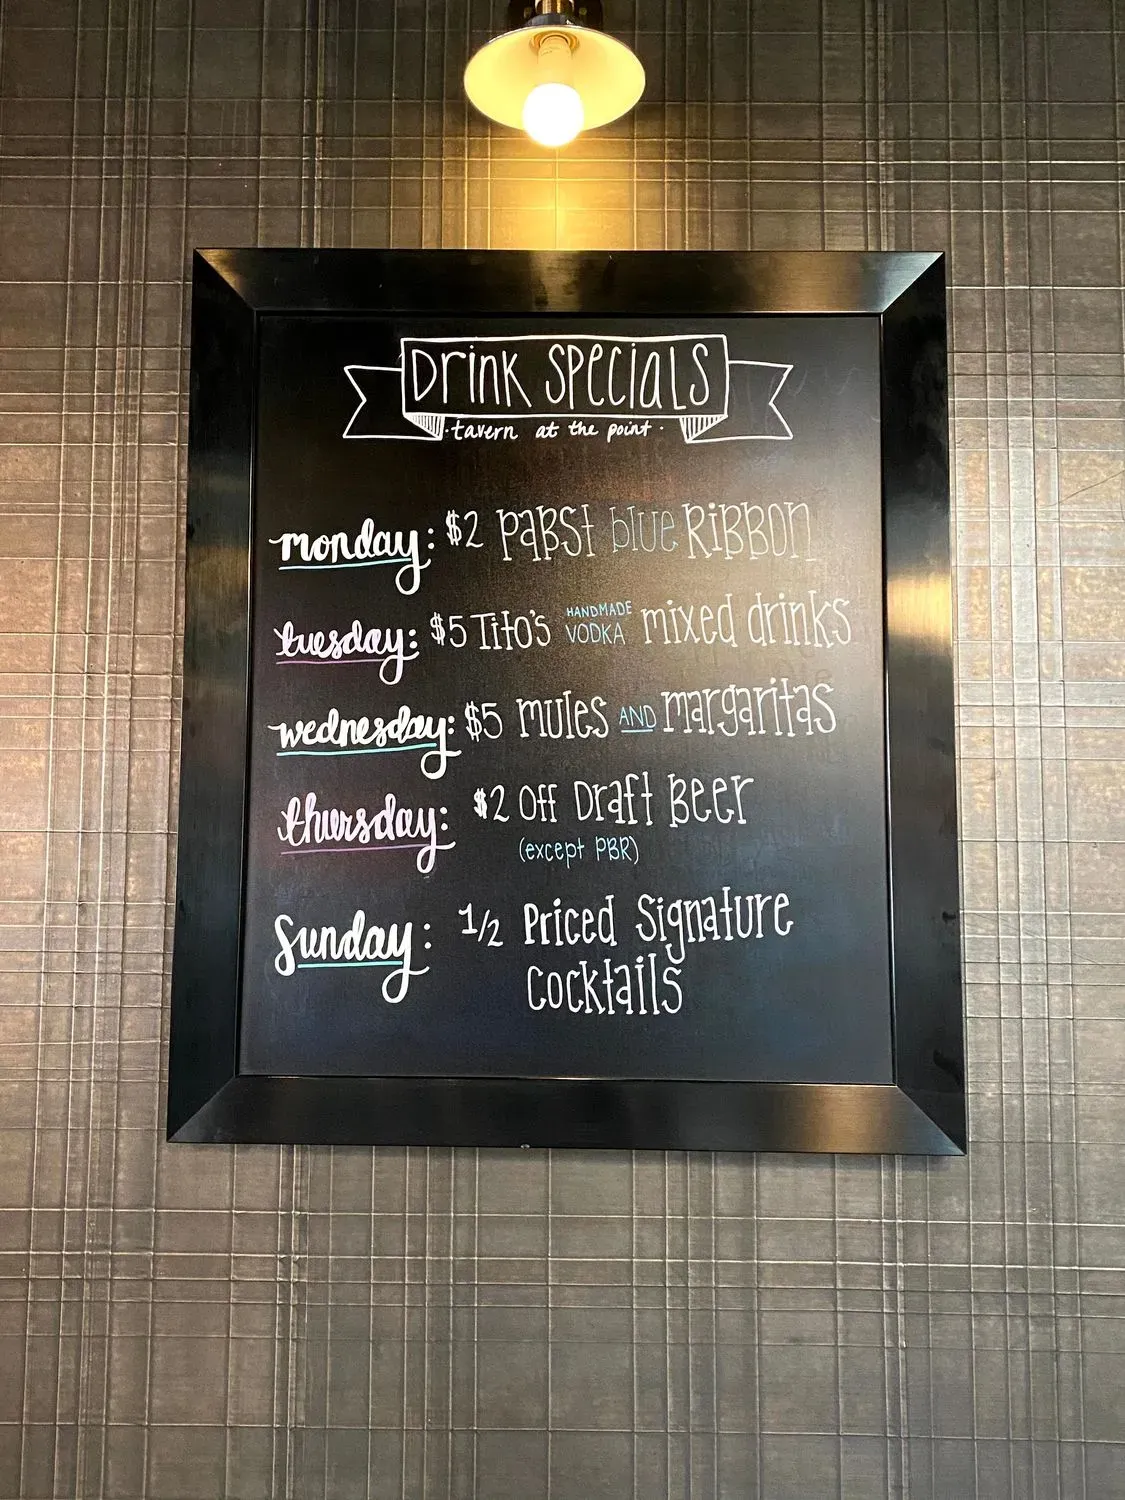 Drink Specials
·tavern at the point·
monday: $2 Pabst blue Ribbon
tuesday: $5 Tito's HANDMADE VODKA mixed drinks
wednesday: $5 mules AND margaritas
thursday: $2 off Draft Beer
(except PBR)
Sunday: 1/2 Priced Signature
cocktails